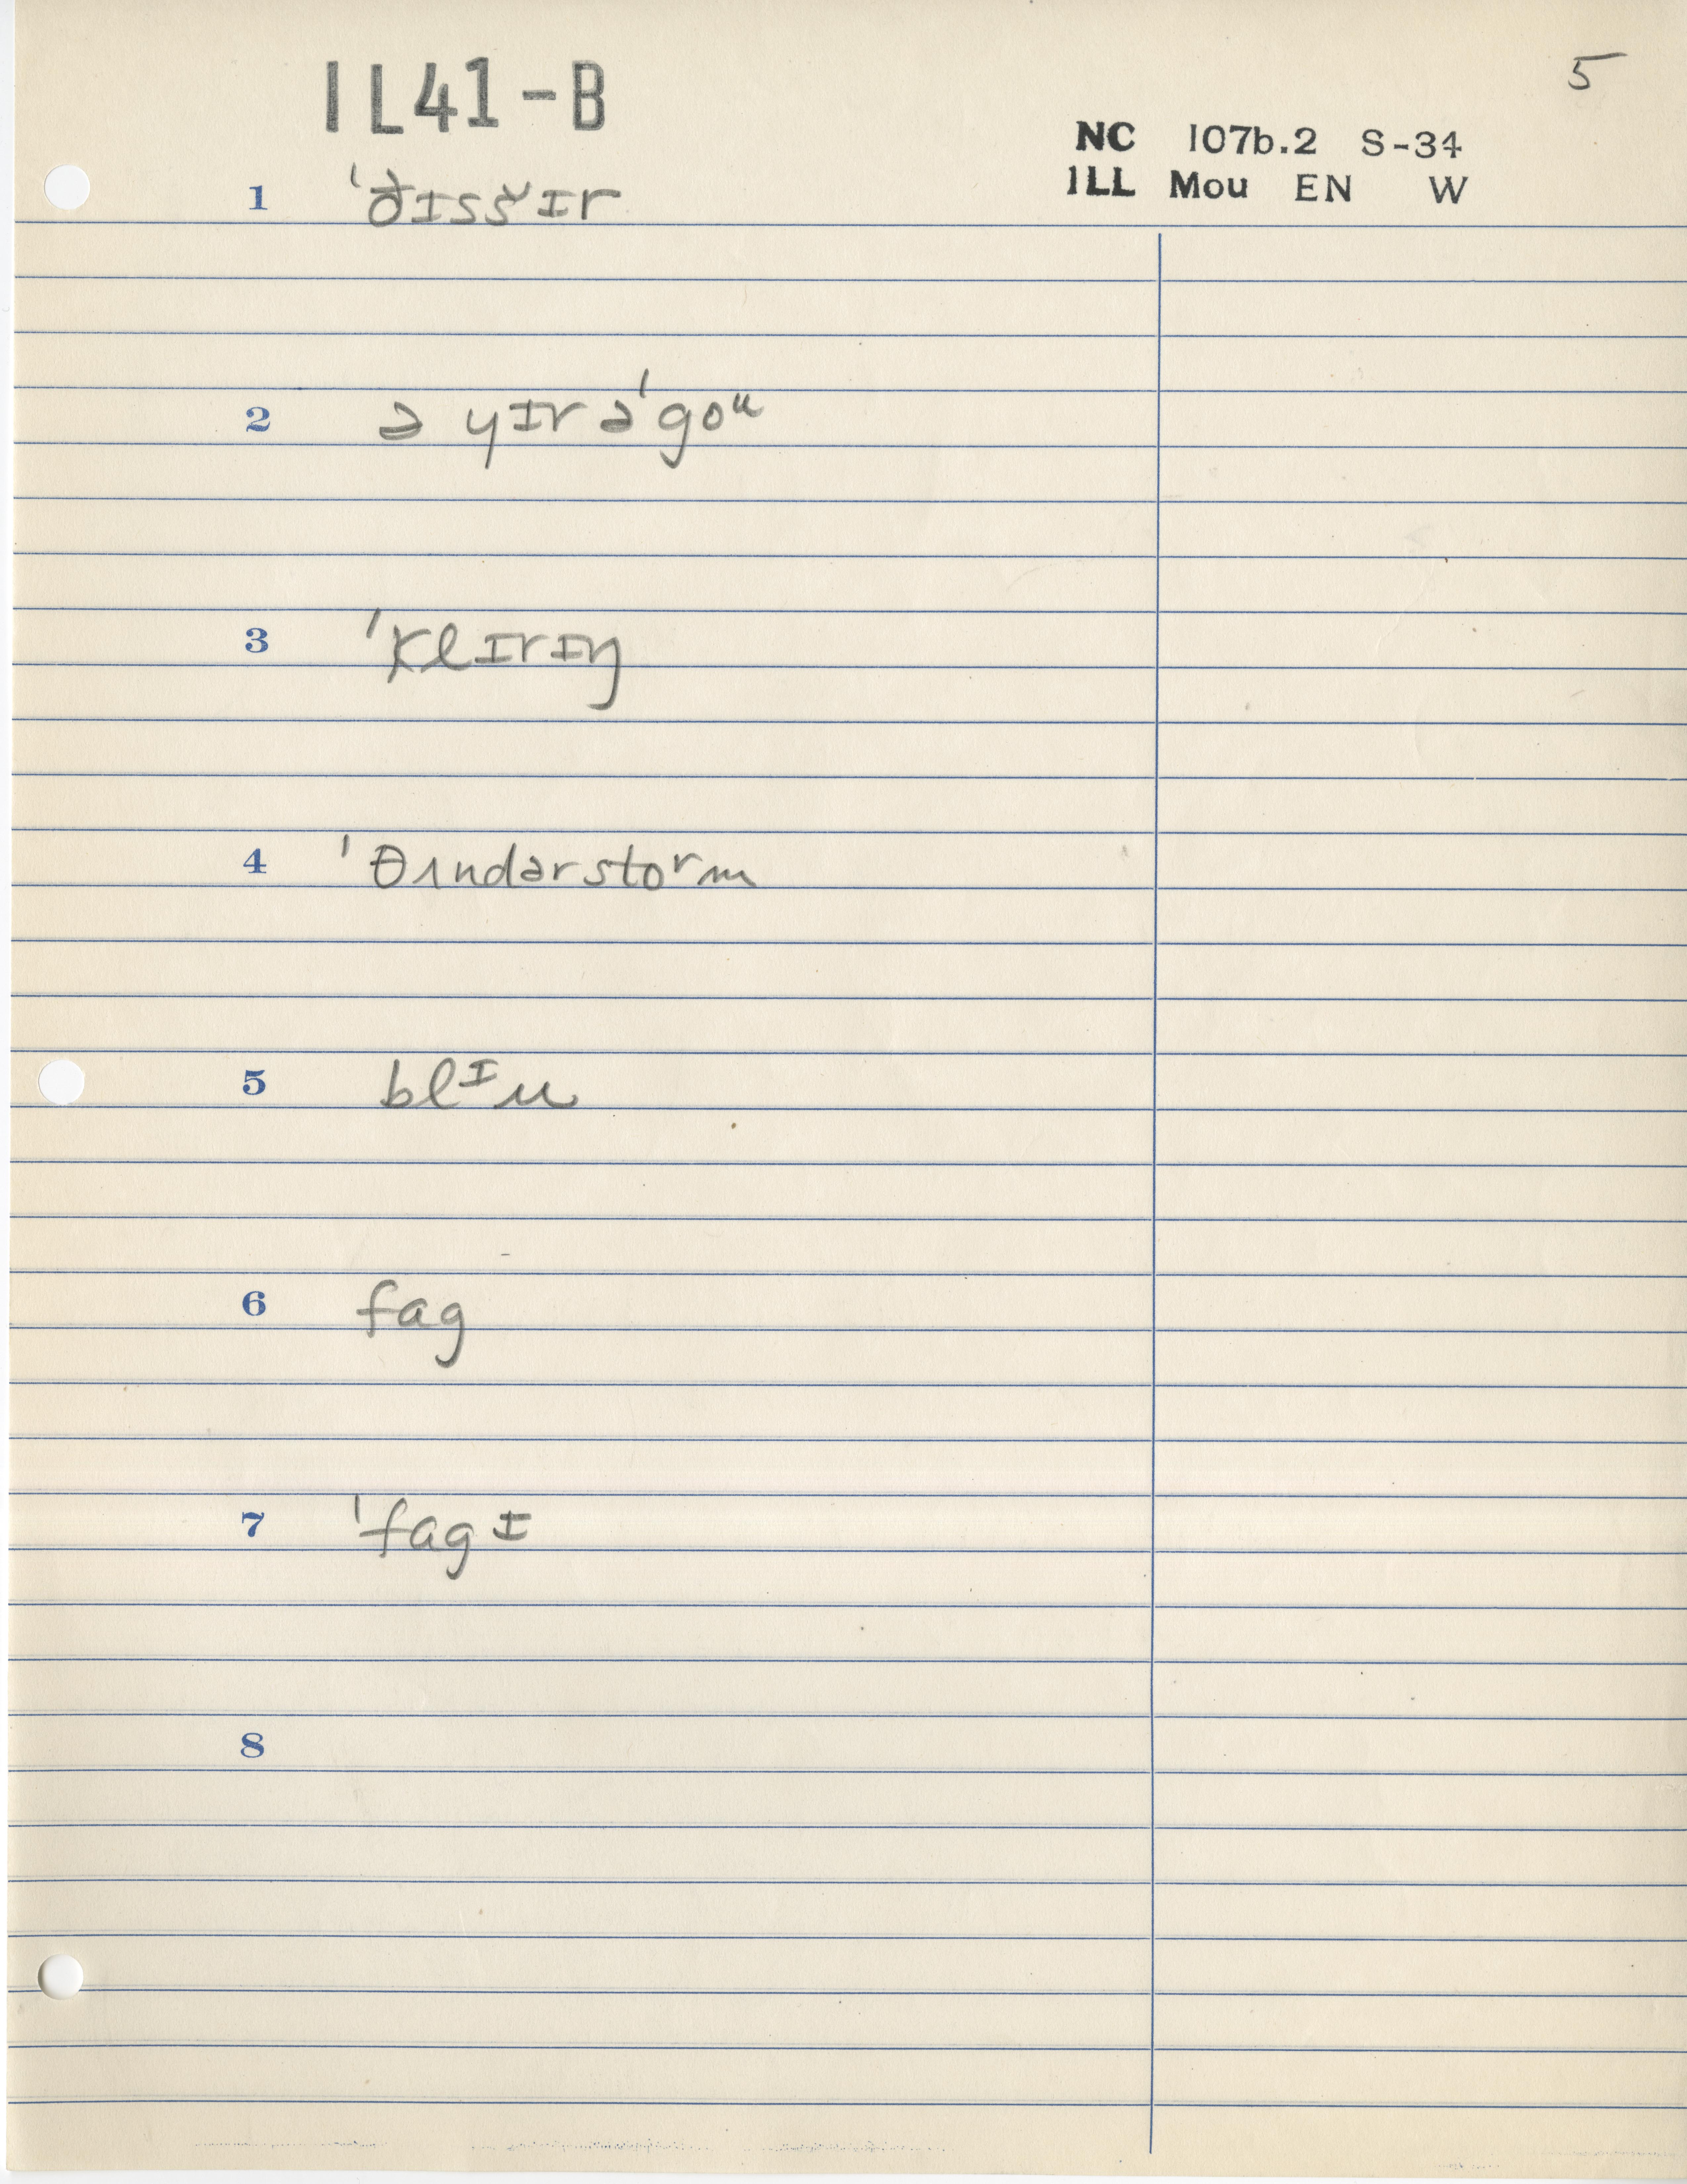 1L41-B
5
NC 107b.2 S-34
ILL Mou EN W
1 ˈðɪsšˈɪr
2 ə yɪr əˈgoᵘ
3 ˈklɪrɪŋ
4 ˈθʌndərstoʳm
5 blᶦu
6 fag
7 ˈfagɪ
8